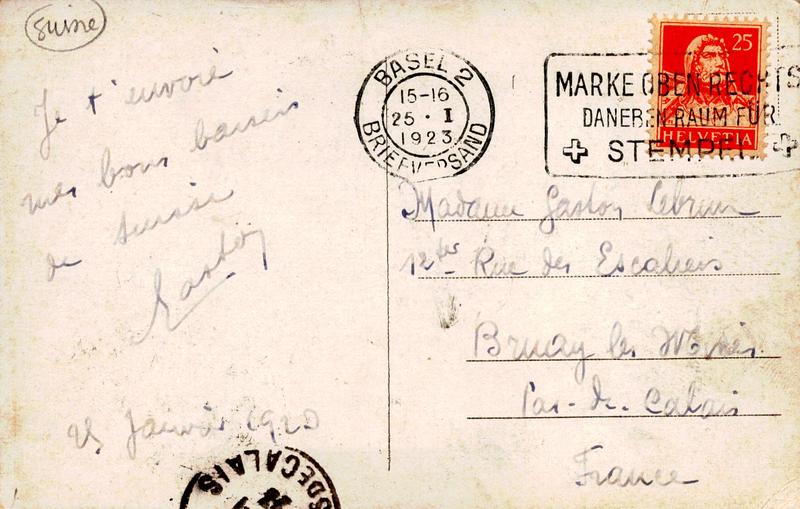 Suisse
Je t'envoie
mes bons baisers
de Suisse
Gaston
25 Janvier 1923
BASEL 2
15-16
25 · I
1923
BRIEFVERSAND
MARKE OBEN RECHTS
DANEBEN RAUM FÜR
STEMPEL
25
HELVETIA
Madame Gaston Lebrun
12 ter Rue des Escaliers
Bruay les Mines
Pas-de-Calais
France
S DE CALAIS